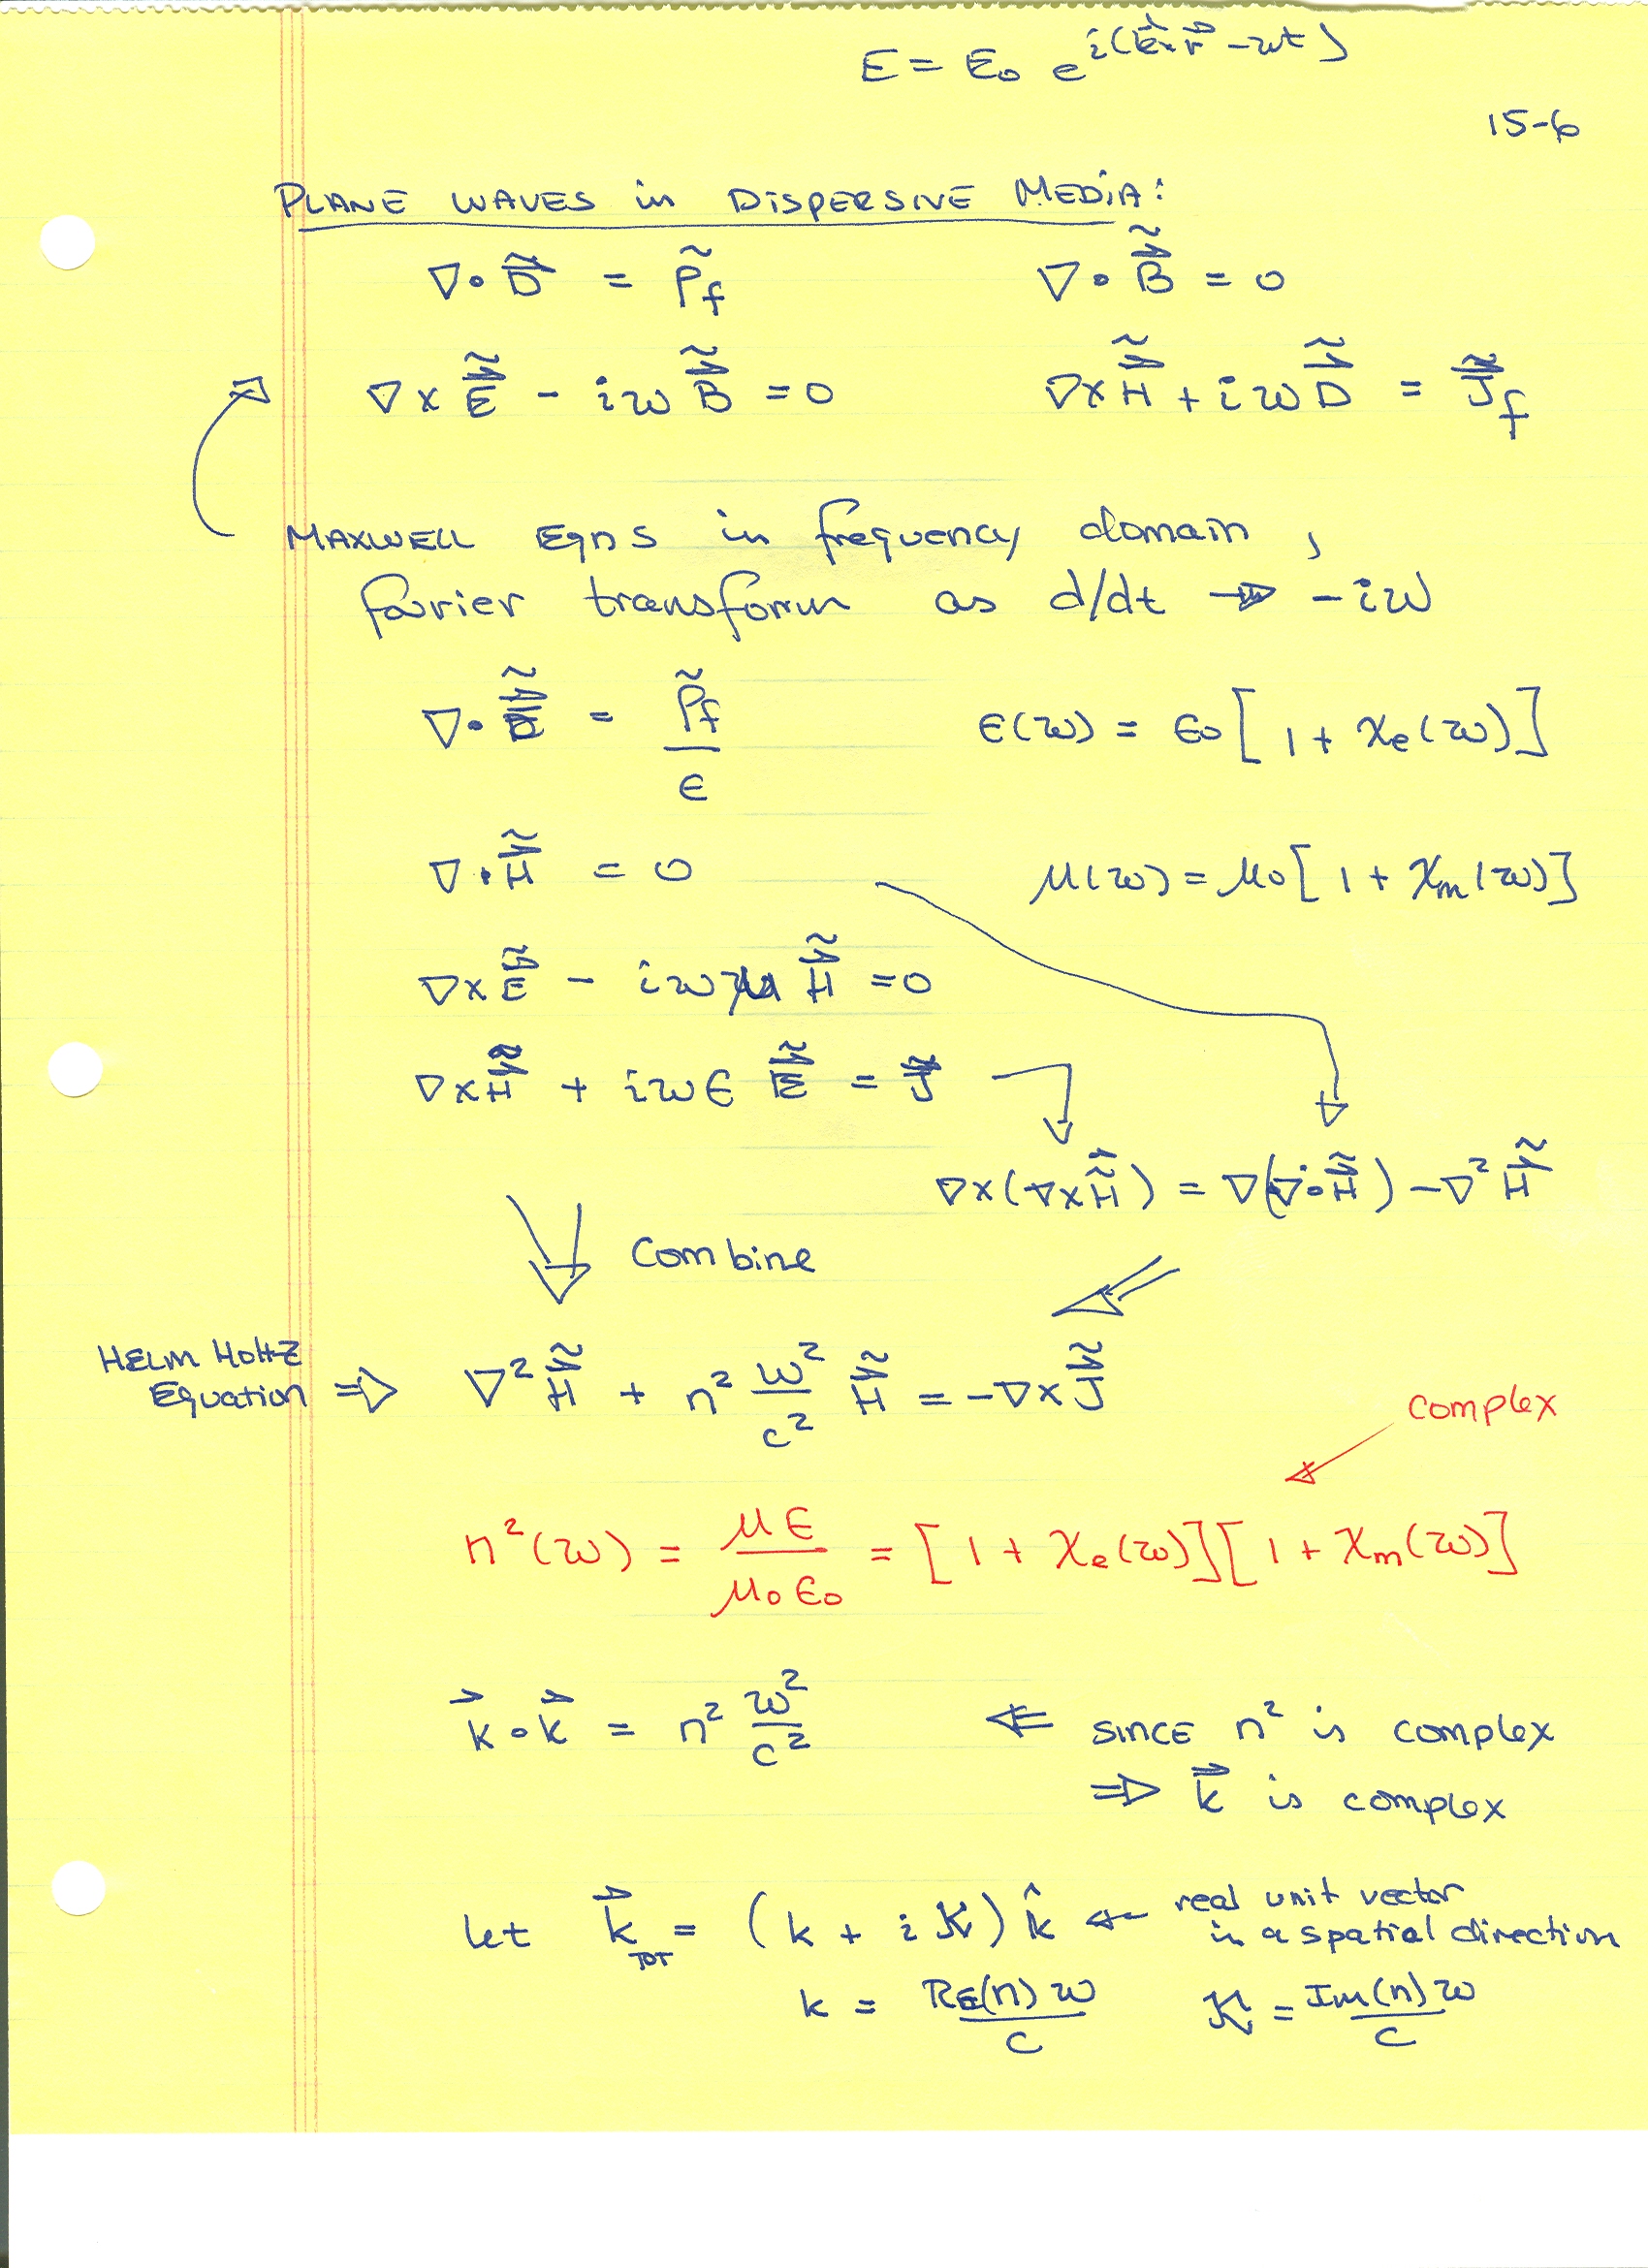 E = E₀ e^{i(k⃗·r⃗ - ωt)}
15-6
PLANE WAVES in DISPERSIVE MEDIA:
∇·D⃗̃ = ρ̃_f    ∇·B⃗̃ = 0
∇×E⃗̃ - iωB⃗̃ = 0    ∇×H⃗̃ + iωD⃗̃ = J⃗̃_f
MAXWELL Eqns in frequency domain,
fourier transform as d/dt → -iω
∇·E⃗̃ = ρ̃_f/ε    ε(ω) = ε₀[1 + χ_e(ω)]
∇·H⃗̃ = 0    μ(ω) = μ₀[1 + χ_m(ω)]
∇×E⃗̃ - iωμ H⃗̃ = 0
∇×H⃗̃ + iωε E⃗̃ = J⃗̃
∇×(∇×H⃗̃) = ∇(∇·H⃗̃) - ∇²H⃗̃
Combine
HELM HOLTZ
Equation ⇒ ∇²H⃗̃ + n² ω²/c² H⃗̃ = -∇×J⃗̃
complex
n²(ω) = με/μ₀ε₀ = [1 + χ_e(ω)][1 + χ_m(ω)]
k⃗·k⃗ = n² ω²/c² ⇐ SINCE n² is complex
⇒ k⃗ is complex
let k⃗_TOT = (k + i𝒦) k̂ ← real unit vector
in a spatial direction
k = Re(n) ω/c    𝒦 = Im(n) ω/c